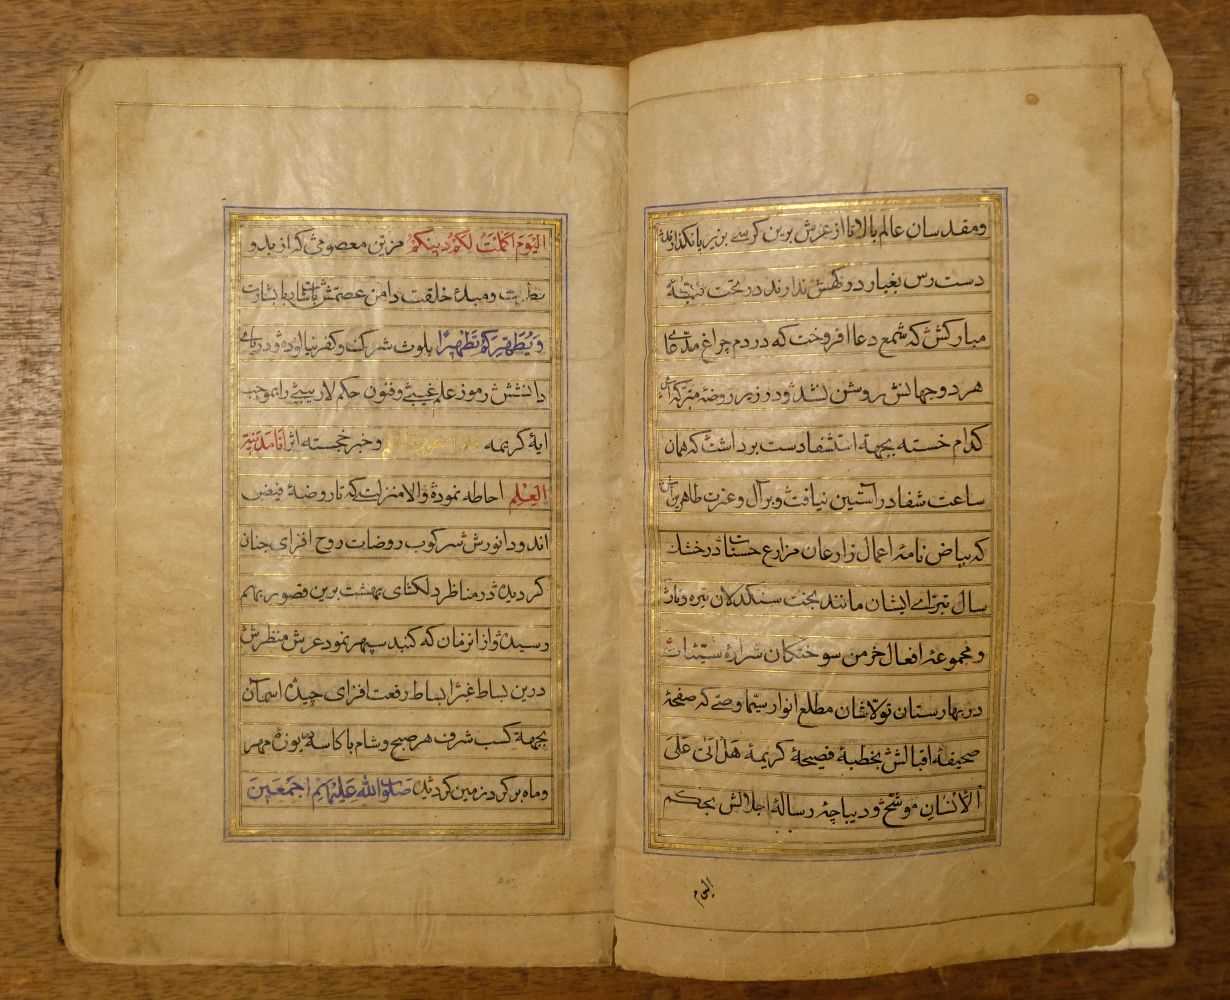 ومقدسان عالم بالا را از عرش برین کرسے بر زبر
دست رس بغبار در کهش ندارند در تحت قبهٔ
مبارکش که شمع دعا افروخت که در دم چراغ مدّعای
هر دو جهانش روشن نشد و در زیر روضهٔ متبرکه اش
کدام خسته بجههٔ استشفا دست برداشت که همان
ساعت شفا در آستین نیافت و بر آل و عترت طاهرین اش
که بیاض نامهٔ اعمال زارعان مزارع حسنات در خشک
سال تبرّاے ایشان مانند بخت سنکدلان تیره و تار
و مجموعهٔ افعال خرمن سوختکان شرارهٔ سیّئات
در بهارستان تولّاشان مطلع انوار سیّما وصّے که صفحهٔ
صحیفهٔ اقبالش بخطبهٔ فصیحهٔ کریمهٔ هَلْ اَتیٰ عَلَی
الْاِنْسَانِ موشّح و دیباچهٔ رسالهٔ اجلالش بحکم
الیوم
اَلْیَوْمَ اَکْمَلْتُ لَکُمْ دِینَکُمْ مزیّن معصومی که از بدو
فطرت و مبدء خلقت دامن عصمتش
وَیُطَهِّرَکُمْ تَطْهِیرًا بلوث شرک و کفر نیالوده و دریای
دانشش رموز علم غیبے و فنون حکم لاریبے را بموجب
ایهٔ کریمه و خبر خجسته اثر اَنَا مَدِینَةُ
الْعِلْمِ احاطه نموده والا منزلت که تا روضهٔ فیض
اندود انورش سرکوب روضات روح افزای جنان
کردیده در مناظر دلکشای بهشت برین قصور بهم
رسیده و از انزمان که کنبد سپهر نمود عرش منظرش
درین بساط غبرا بساط رفعت افزای چیده اسمان
بجههٔ کسب شرف هر صبح و شام با کاسه دریوزه مهر
و ماه بر کرد زمین کردیده صَلَوَاتُ اللّٰهِ عَلَیْهِمْ اَجْمَعِینَ